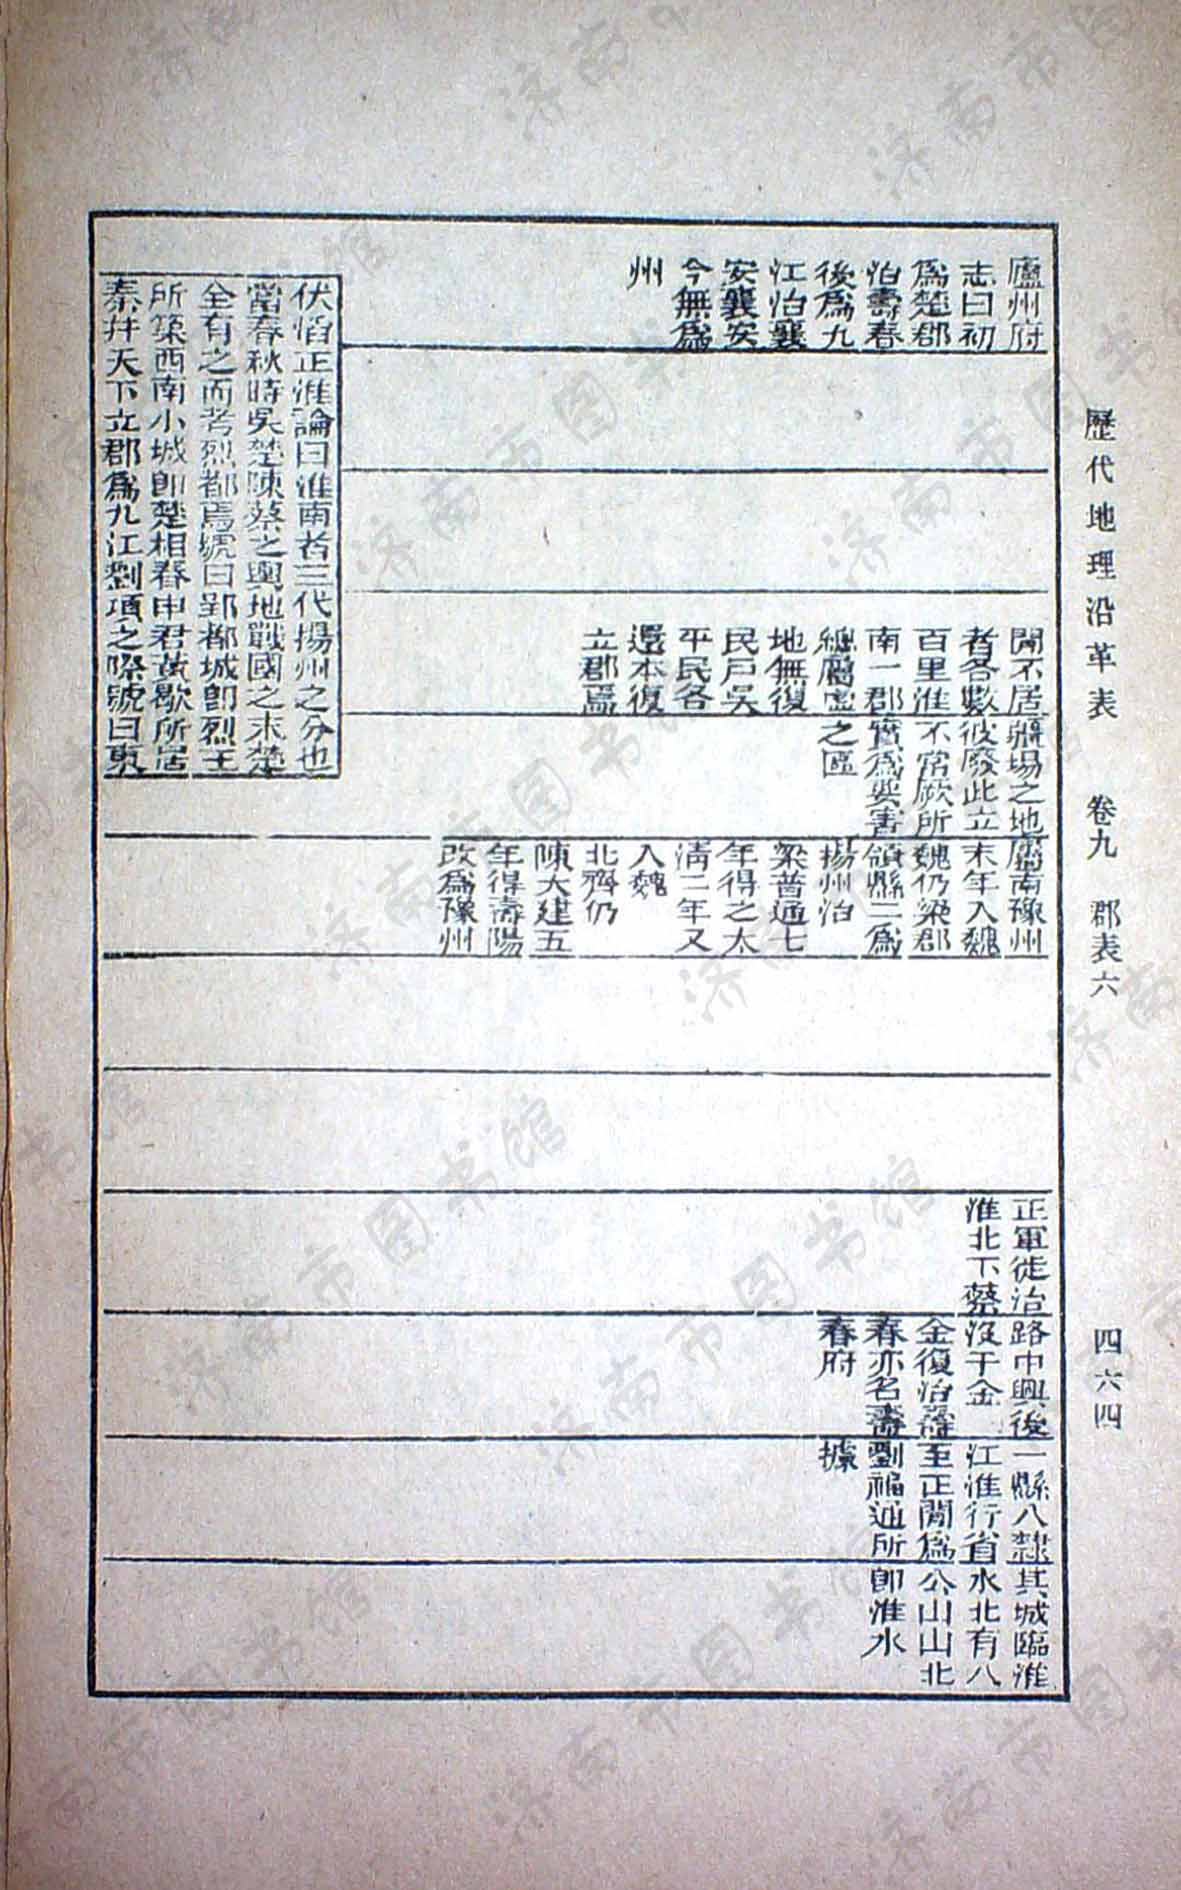 歷代地理沿革表 卷九 郡表六 四六四
廬州府
志曰初
爲楚郡
治壽春
後爲九
江治襄
安襄安
今無爲
州
間不居
者各數
百里淮
南一郡
總屬虛
地無復
民戶吳
平民各
還本復
立郡焉
疆場之地
彼廢此立
不常厥所
實爲要害
之區
屬南豫州
末年入魏
魏仍梁郡
領縣二爲
揚州治
梁普通七
年得之太
清二年又
入魏
北齊仍
陳大建五
年得壽陽
改爲豫州
正軍徙治
淮北下蔡
路中興後
沒于金
金復治壽
春亦名壽
春府
一縣八隸
江淮行省
至正間爲
劉福通所
據
其城臨淮
水北有八
公山山北
卽淮水
伏滔正淮論曰淮南者三代揚州之分也
當春秋時吳楚陳蔡之輿地戰國之末楚
全有之而考烈都焉號曰郢都城卽烈王
所築西南小城卽楚相春申君黃歇所居
秦幷天下立郡爲九江劉項之際號曰東
济南市图书馆